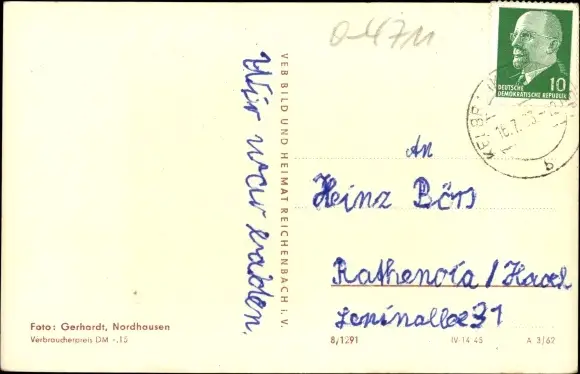 0-4711
10
DEUTSCHE
DEMOKRATISCHE REPUBLIK
KELBR
16.7.63
b
Wir war
VEB BILD UND HEIMAT REICHENBACH i. V.
An
Heinz Börs
Rathenow / Havel
Leninallee 31
Foto: Gerhardt, Nordhausen
Verbraucherpreis DM -.15
8/1291
IV-14-45
A 3/62